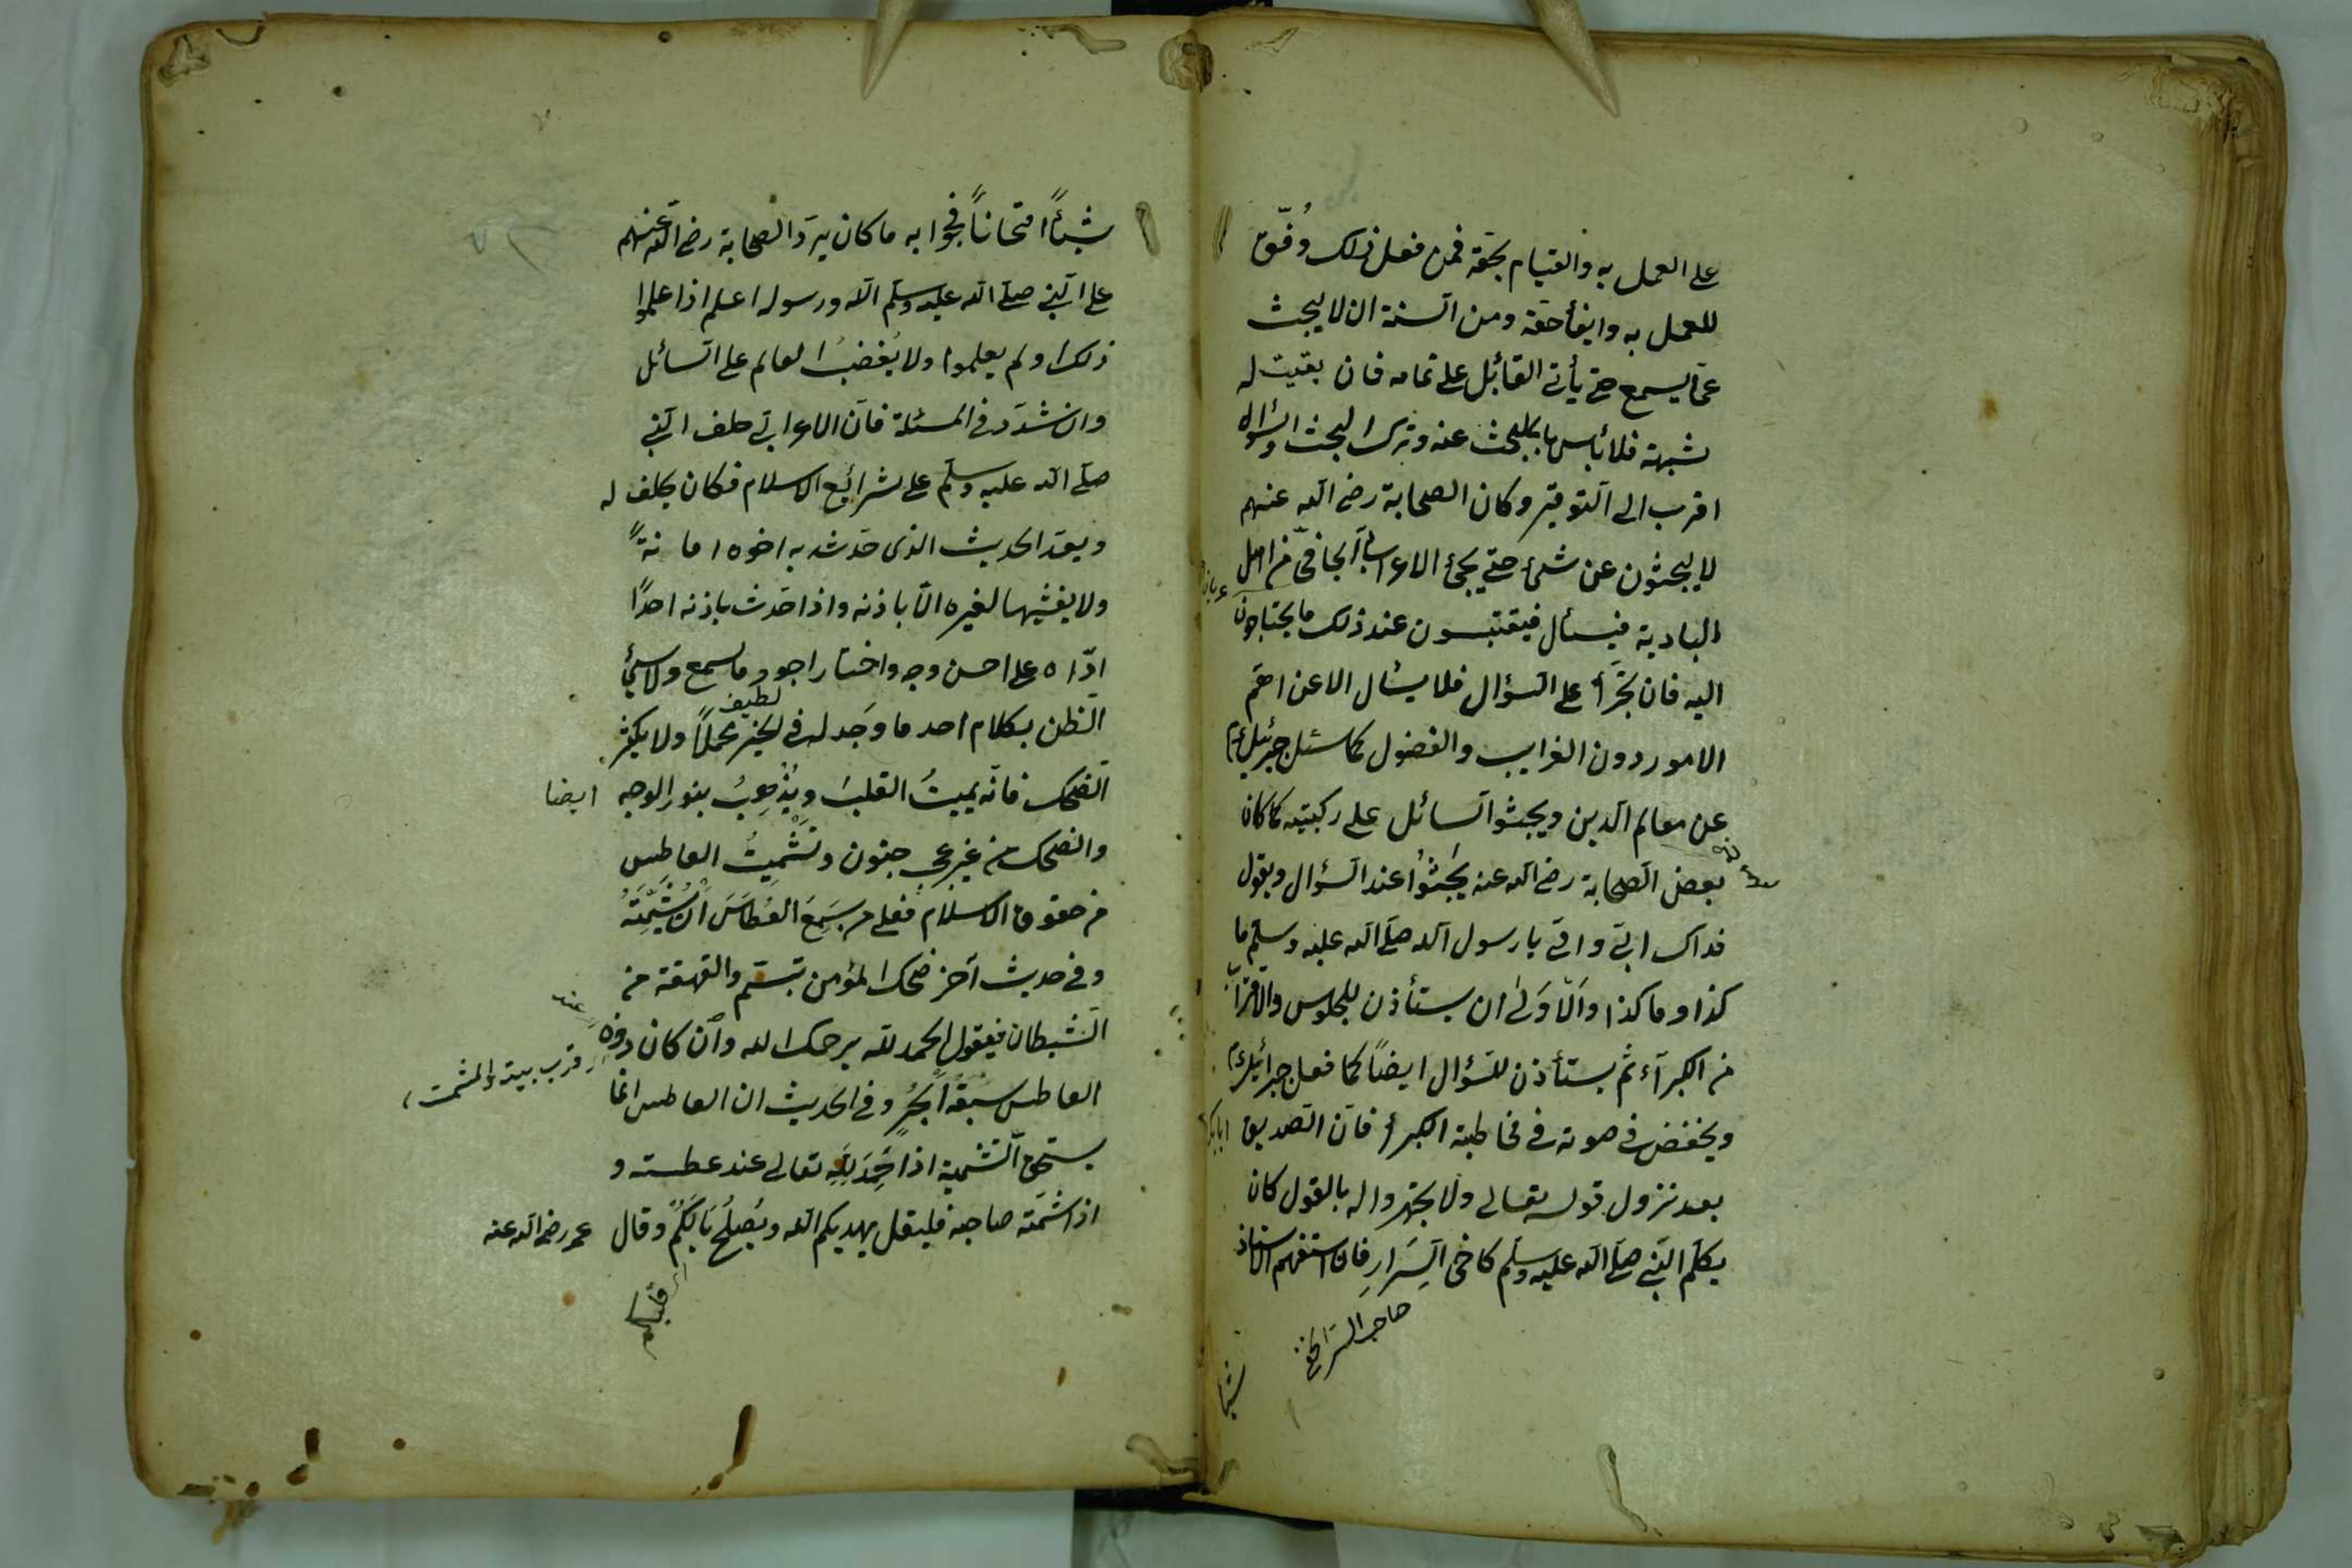 على العمل به والقيام بحقه فمن فعل ذلك وُفّق
للعمل به وايفأحقه ومن السنة ان لا يبحث
عمّا يسمع حتى يأتى القائل على تمامه فان بقيت له
شبهة فلا بأس بالبحث عنه وترك البحث والسؤال
اقرب الى التوقير وكان الصحابة رضى الله عنهم
لا يبحثون عن شئ حتى يجئ الاعرابى الجافى من اهل
البادية فيسأل فيقتبسون عند ذلك ما يحتاجون
اليه فان تجرّأ على السؤال فلا يسأل الا عن اهمّ
الامور دون الغرايب والفضول كما سئل جبرئيل ع م
عن معالم الدين ويجثوا السائل على ركبتيه كما كان
بعض الصحابة رضى الله عنه يجثوُا عند السؤال ويقول
فداك ابى وامّى يا رسول الله صلى الله عليه وسلم ما
كذا وما كذا والاَوْلىٰ ان يستأذن للجلوس والاقتراب
من الكبرآء ثم يستأذن للسؤال ايضًا كما فعل جبرائيل ع م
ويخفض فى صوته فى مخاطبة الكبرأ فانّ الصديق
بعد نزول قوله تعالى ولا تجهروا له بالقول كان
يكلّم النبى صلى الله عليه وسلم كاخى السِّرارِ فان استفهم الاستاذ
صاحب السر الخفى
شيئا
شيئًا امتحانًا فجوابه ما كان يردّ الصحابة رضى الله عنهم
على النبى صلى الله عليه وسلم الله ورسوله اعلم اذا علموا
ذلك او لم يعلموا ولا يُغضبُ العالم على السائل
وان شدّد فى المسئلة فانّ الاعرابى حلف النبى
صلى الله عليه وسلم على شرائع الاسلام فكان يحلف له
ويعدّ الحديث الذى حدّثه به اخوه امانةً
ولا يفشيها لغيره الّا باذنه واذا حدّث باذنه احدًا
ادّاه على احسن وجه واختار اجود ما سمع ولا يسئ
الظن بكلام احد ما وَجد له فى الخير محملًا ولا يكثر
لطيف
الضحك فانّه يميتُ القلبَ ويُذهِبُ بنور الوجه ايضا
والضحك من غير عجب جنون وتَشْمِيتُ العاطس
من حقوق الاسلام فعلى من سَمِعَ العُطاسَ ان يُشَمِّتَهُ
وفى حديث آخر ضحك المؤمن تبسّم والقهقهة من
الشيطان فيقول الحمد لله يرحمك الله وان كان دونه
العاطس سبعة ابحُر وفى الحديث ان العاطس انما
يستحق التشمية اذا حَمِدَ لِلّهِ تعالى عند عطسته و
اذا شمّته صاحبه فليقل يهديكم الله ويُصلُح بَالَكُمْ وقال عمر رضى الله عنه
اى قلبكم